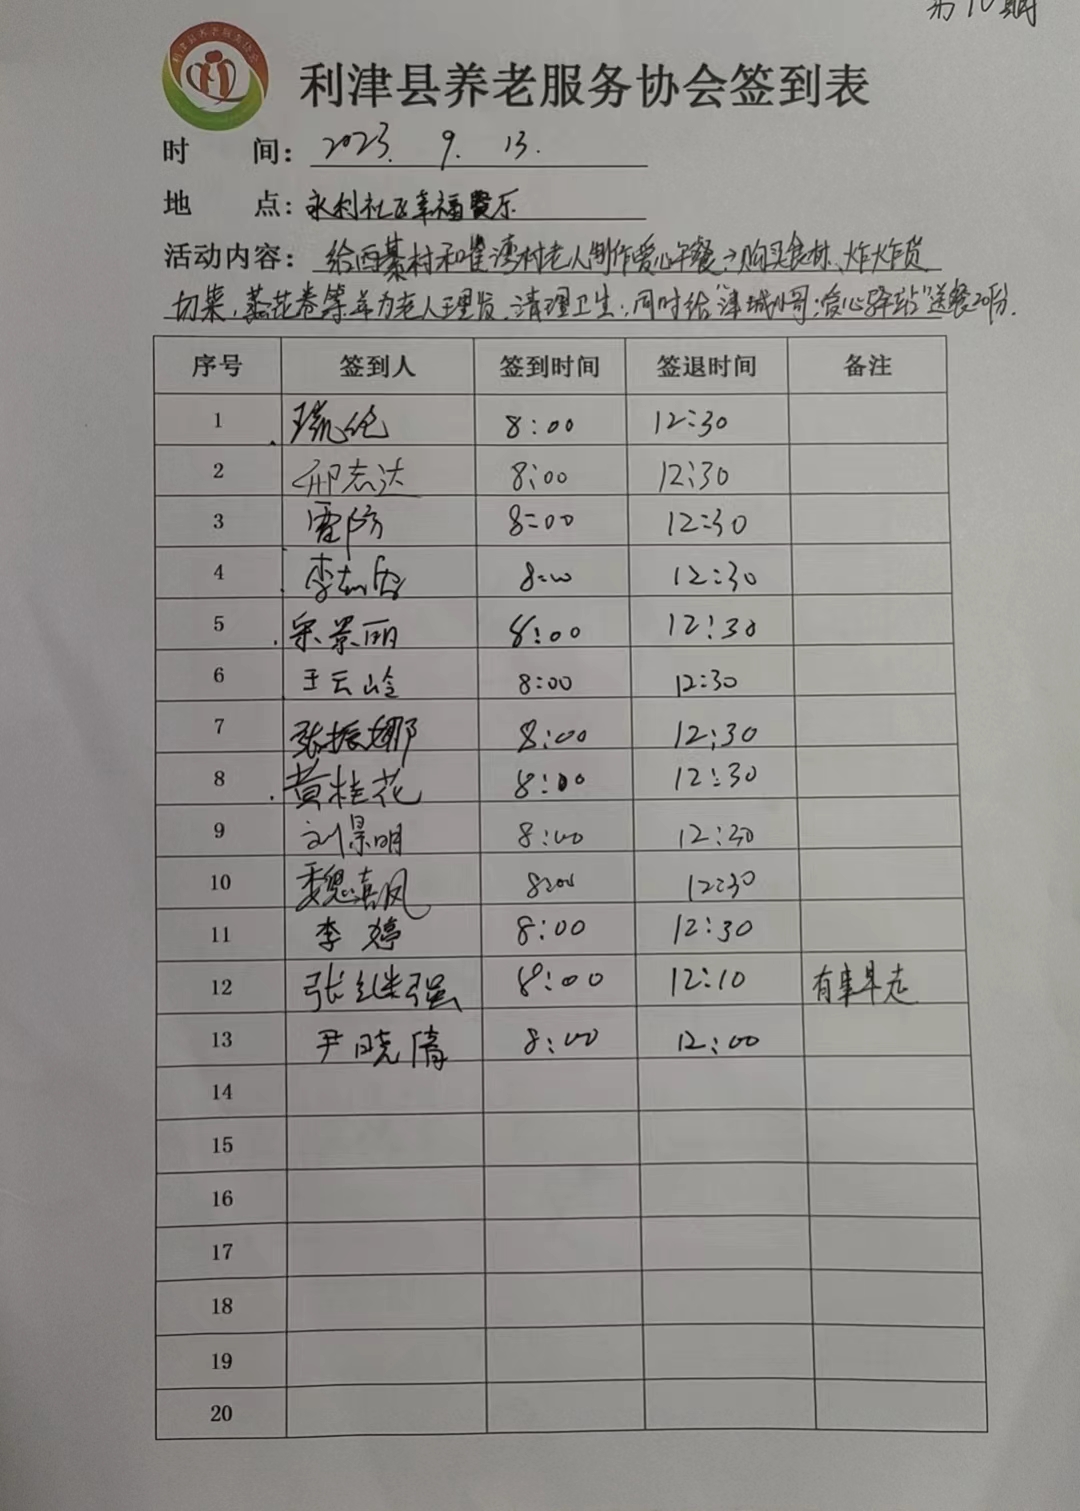 第10期
利津县养老服务协会
利津县养老服务协会签到表
时 间: 2023. 9. 13.
地 点: 永利社区幸福餐厅
活动内容: 给西綦村和崔湾村老人制作爱心午餐:购买食材、炸炸货
切菜,蒸花卷等并为老人理发、清理卫生,同时给"津城小哥·爱心驿站"送餐20份.
序号 签到人 签到时间 签退时间 备注
1 8:00 12:30
2 邢志达 8:00 12:30
3 霍防 8:00 12:30
4 李志 8:00 12:30
5 宋景丽 8:00 12:30
6 王云岭 8:00 12:30
7 张振娜 8:00 12:30
8 黄桂花 8:00 12:30
9 刘景明 8:00 12:30
10 魏喜凤 8:00 12:30
11 李婷 8:00 12:30
12 张继强 8:00 12:10 有事早走
13 尹晓倩 8:00 12:00
14
15
16
17
18
19
20